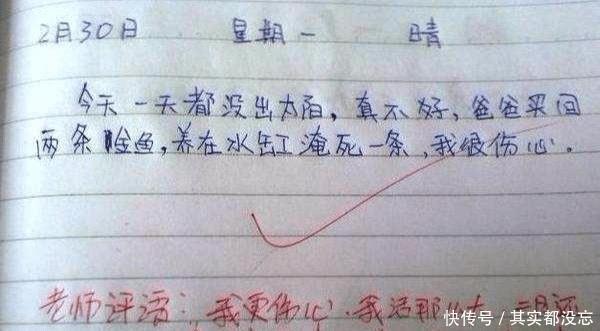 2月30日 星期一 晴
今天一天都没出太阳，真不好，爸爸买回
两条金鱼，养在水缸淹死一条，我很伤心。
老师评语：我更伤心，我活那么大，二月还
快传号/其实都没忘